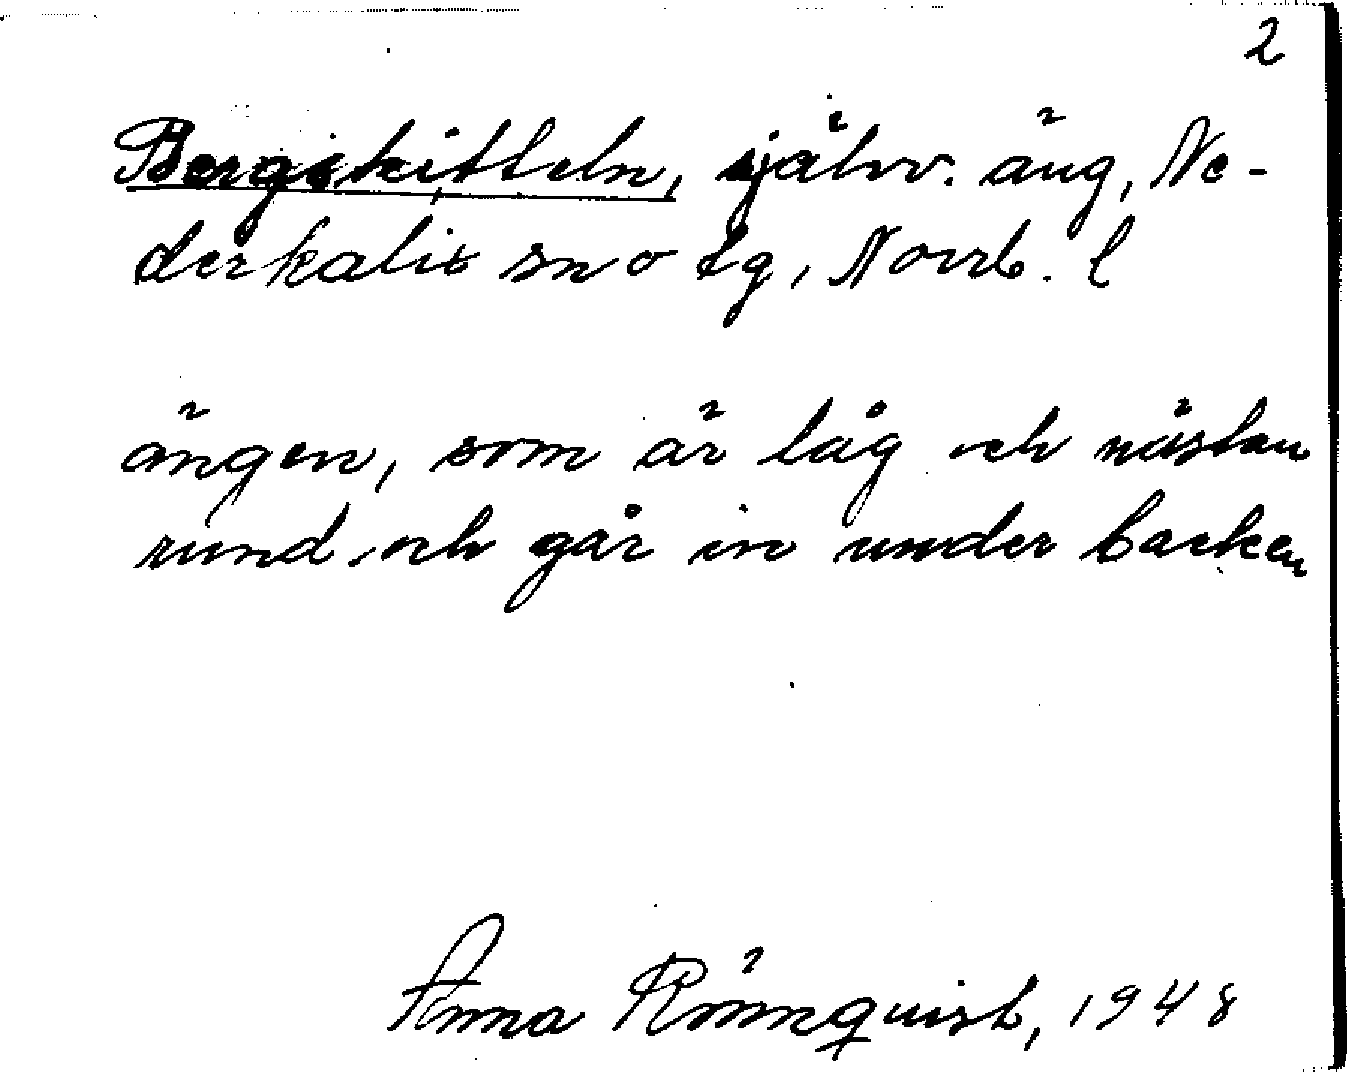 2
Bergskitteln, självv. äng, Ne-
derkalix sn o tg, Norrb. l
ängen, som är låg och nästan
rund och går in under backen
Anna Rönnquist, 1948